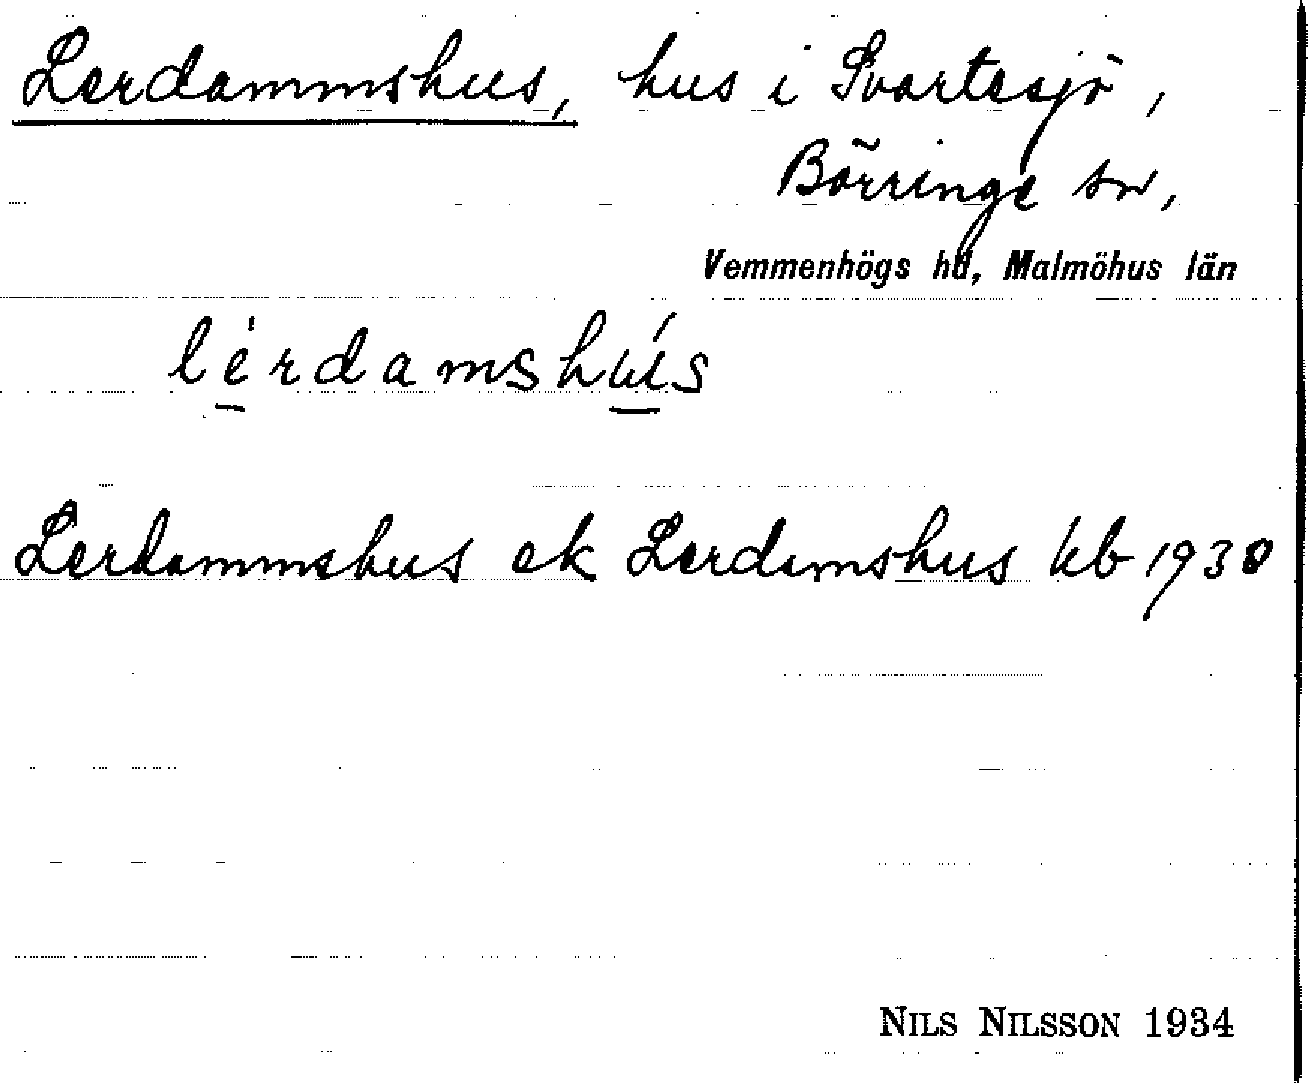 Lerdammshus, hus i Svartesjö,
Börringe sn,
Vemmenhögs hd, Malmöhus län
lèrdamshús
Lerdammshus ek Lerdamshus kb 1930
NILS NILSSON 1934